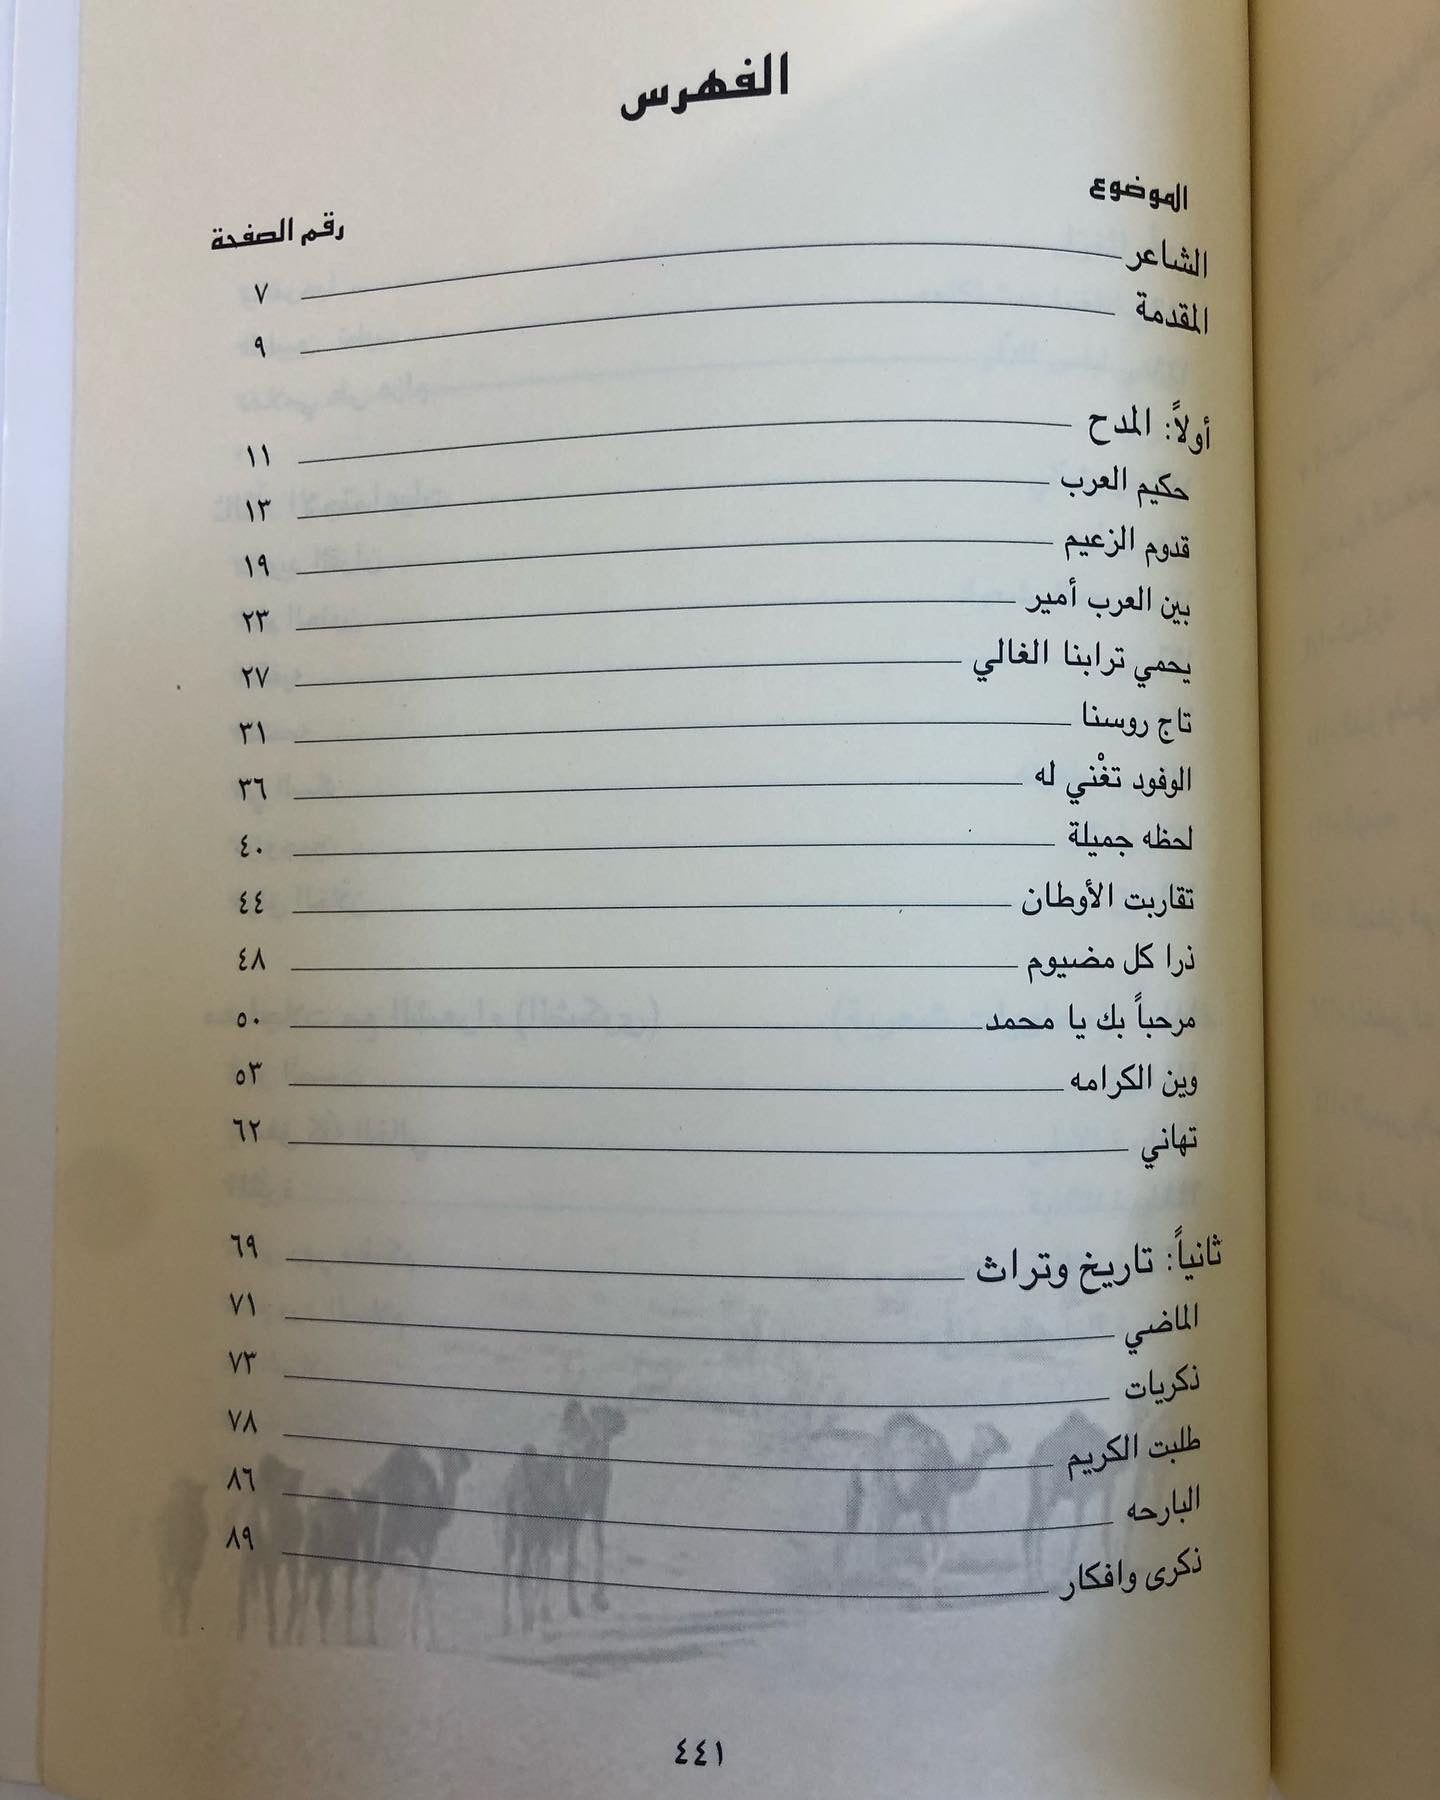 الفهرس
الموضوع رقم الصفحة
الشاعر ٧
المقدمة ٩
أولاً: المدح ١١
حكيم العرب ١٣
قدوم الزعيم ١٩
بين العرب أمير ٢٣
يحمي ترابنا الغالي ٢٧
تاج روسنا ٣١
الوفود تغْني له ٣٦
لحظه جميلة ٤٠
تقاربت الأوطان ٤٤
ذرا كل مضيوم ٤٨
مرحباً بك يا محمد ٥٠
وين الكرامه ٥٣
تهاني ٦٢
ثانياً: تاريخ وتراث ٦٩
الماضي ٧١
ذكريات ٧٣
طلبت الكريم ٧٨
البارحه ٨٦
ذكرى وافكار ٨٩
٤٤١